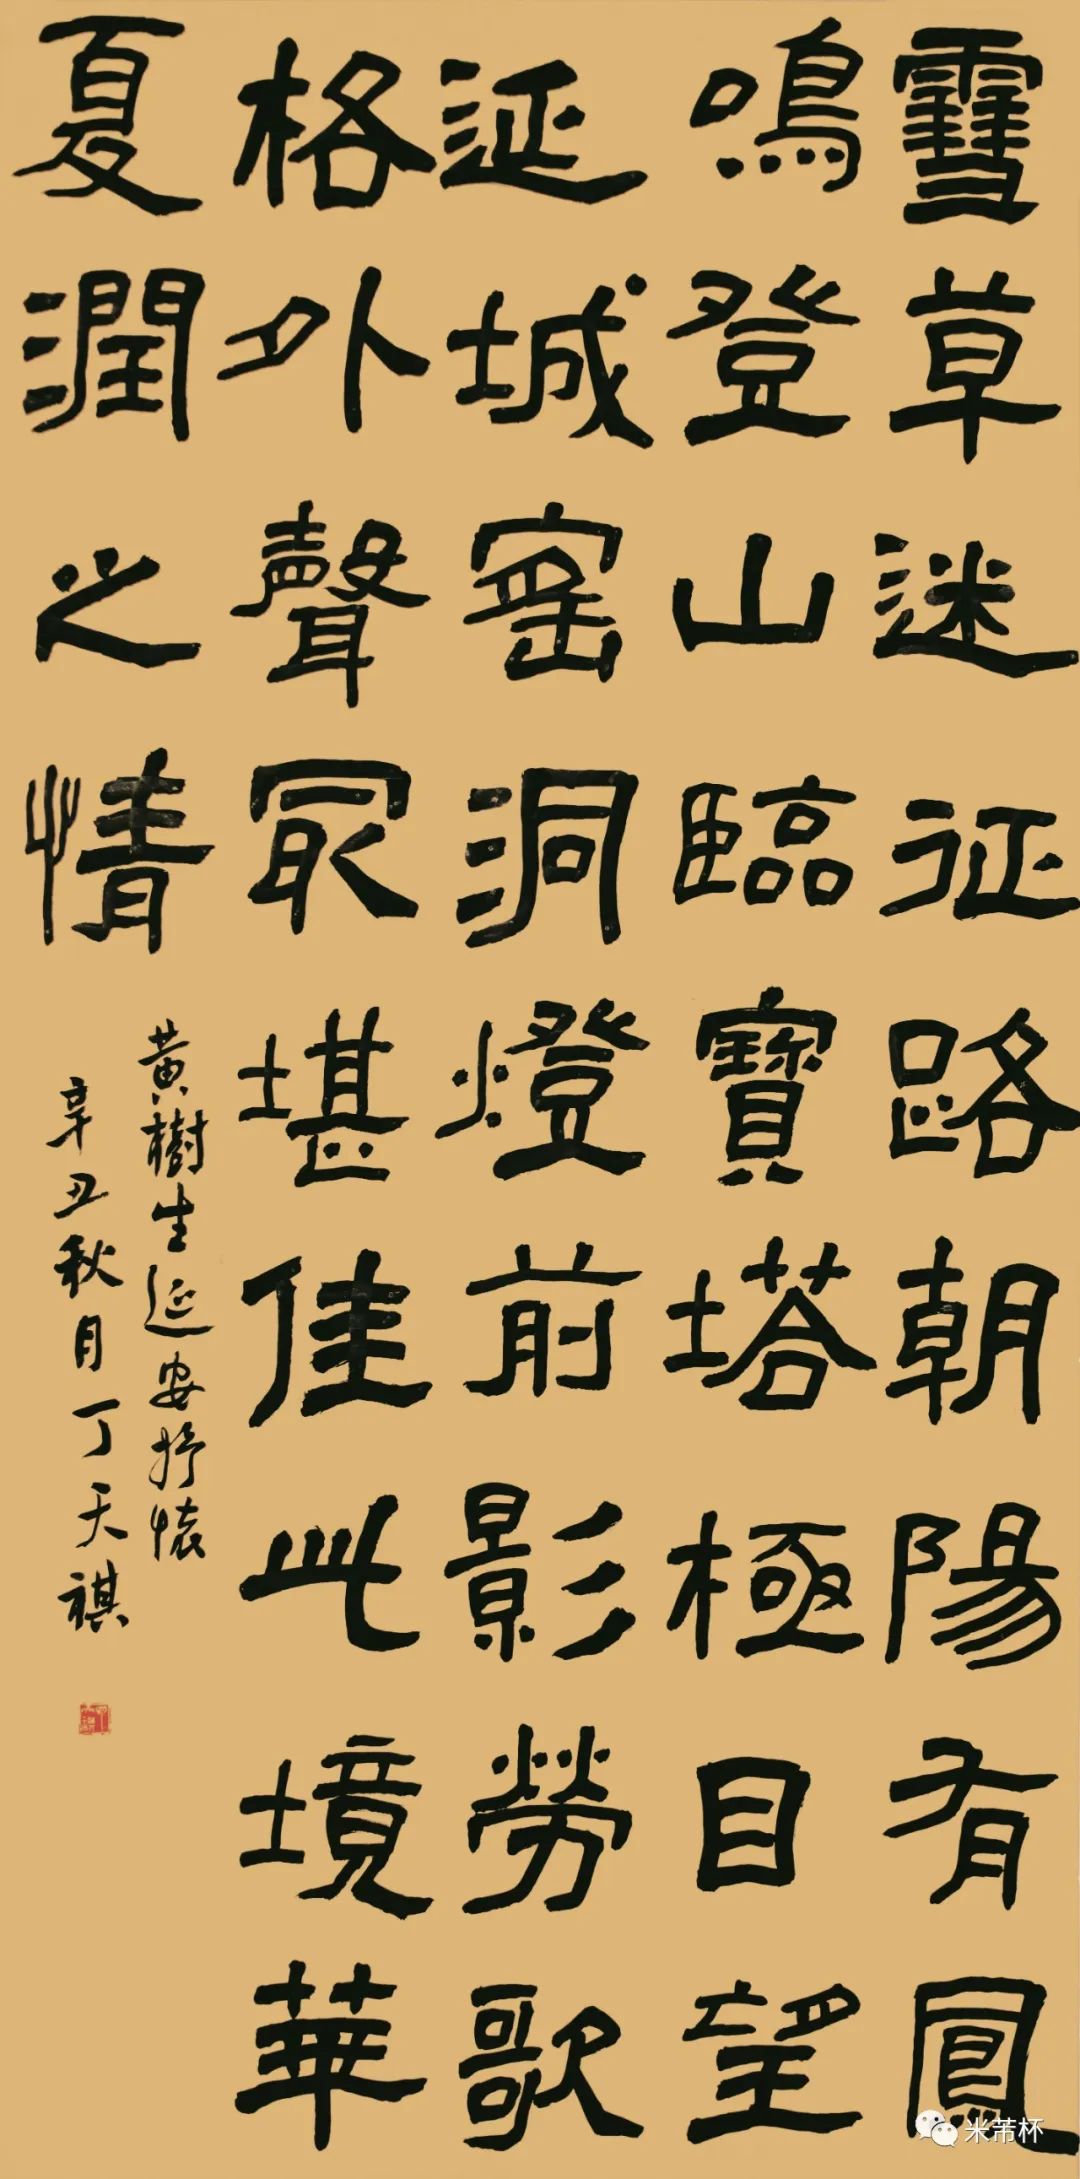 雪草迷征路朝陽有鳳
鳴登山臨寶塔極目望
延城窰洞燈前影勞歌
格外聲最堪佳此境華
夏潤之情
黃樹生延安抒懷
辛丑秋月丁天祺
米芾杯